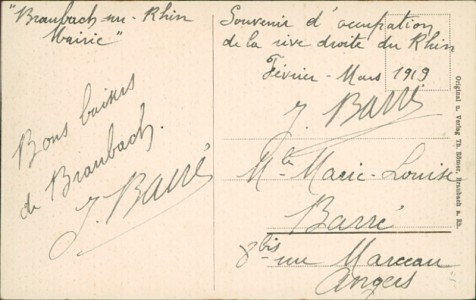 "Braubach-sur-Rhin
Mairie"
Bons baisers
de Braubach.
J. Barré
Souvenir d'occupation
de la rive droite du Rhin
Février - Mars 1919
J. Barré
Mlle Marie-Louise
Barré
8bis rue Marceau
Angers
Original u. Verlag Th. Römer, Braubach a. Rh.